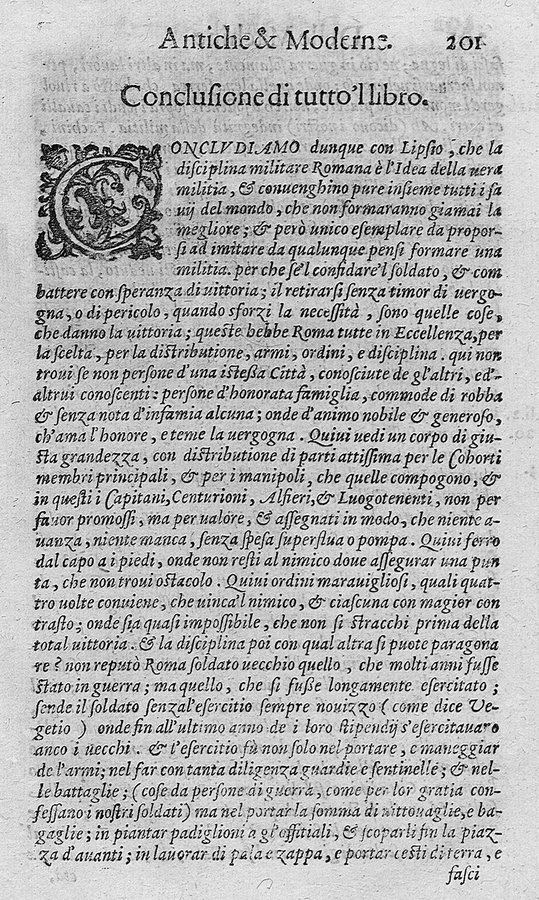 Antiche & Moderne. 201
Conclusione di tutto'l libro.
CONCLVDIAMO dunque con Lipsio, che la
disciplina militare Romana è l'Idea della vera
militia, & conuenghino pure insieme tutti i sa
uij del mondo, che non formaranno giamai la
megliore; & però unico esemplare da propor-
si ad imitare da qualunque pensi formare una
militia. per che se'l confidare'l soldato, & com
battere con speranza di vittoria; il retirarsi senza timor di vergo-
gna, o di pericolo, quando sforzi la necessità, sono quelle cose,
che danno la vittoria; queste hebbe Roma tutte in Eccellenza, per
la scelta, per la distributione, armi, ordini, e disciplina. qui non
troui se non persone d'una istessa Città, conosciute de gl'altri, ed'
altrui conoscenti: persone d'honorata famiglia, commode di robba
& senza nota d'infamia alcuna; onde d'animo nobile & generoso,
ch'ama l'honore, e teme la vergogna. Quiui vedi un corpo di giu-
sta grandezza, con distributione di parti attissima per le Cohorti
membri principali, & per i manipoli, che quelle compogono, &
in questi i Capitani, Centurioni, Alfieri, & Luogotenenti, non per
fauor promossi, ma per valore, & assegnati in modo, che niente a-
uanza, niente manca, senza spesa superflua o pompa. Quiui ferro
dal capo a i piedi, onde non resti al nimico doue assegurar una pun
ta, che non troui ostacolo. Quiui ordini marauigliosi, quali quat-
tro volte conuiene, che uinca'l nimico, & ciascuna con magior con
trasto; onde sia quasi impossibile, che non si stracchi prima della
total vittoria. & la disciplina poi con qual altra si puote paragona
re? non reputò Roma soldato uecchio quello, che molti anni fusse
stato in guerra; ma quello, che si fusse longamente esercitato;
sende il soldato senza l'esercitio sempre nouizzo (come dice Ve-
getio) onde fin all'ultimo anno de i loro stipendij s'esercitauano
anco i uecchi. & l'esercitio fù non solo nel portare, e maneggiar
de l'armi; nel far con tanta diligenza guardie e sentinelle; & nel-
le battaglie; (cose da persone di guerra, come per lor gratia con-
fessano i nostri soldati) ma nel portar la somma di uittouaglie, e ba-
gaglie; in piantar padiglioni a gl'offitiali, & scoparli fin la piaz-
za d'auanti; in lauorar di pala e zappa, e portar cesti di terra, e
fasci